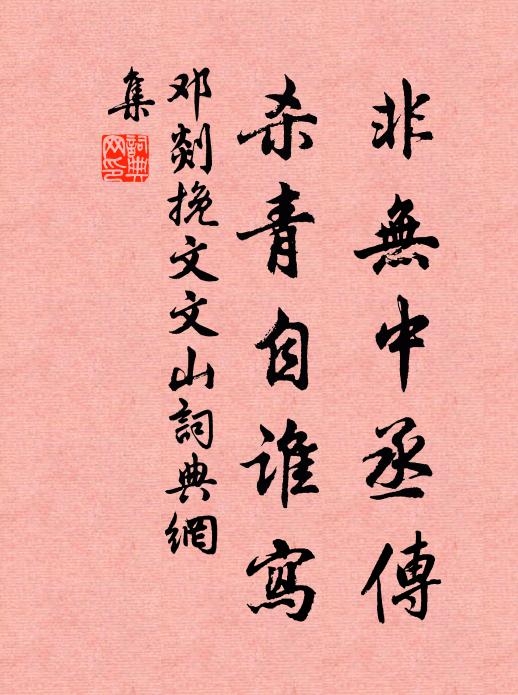 非無中丞傳
杀青自谁寫
邓剡挽文文山詞典網
集
詞典网印